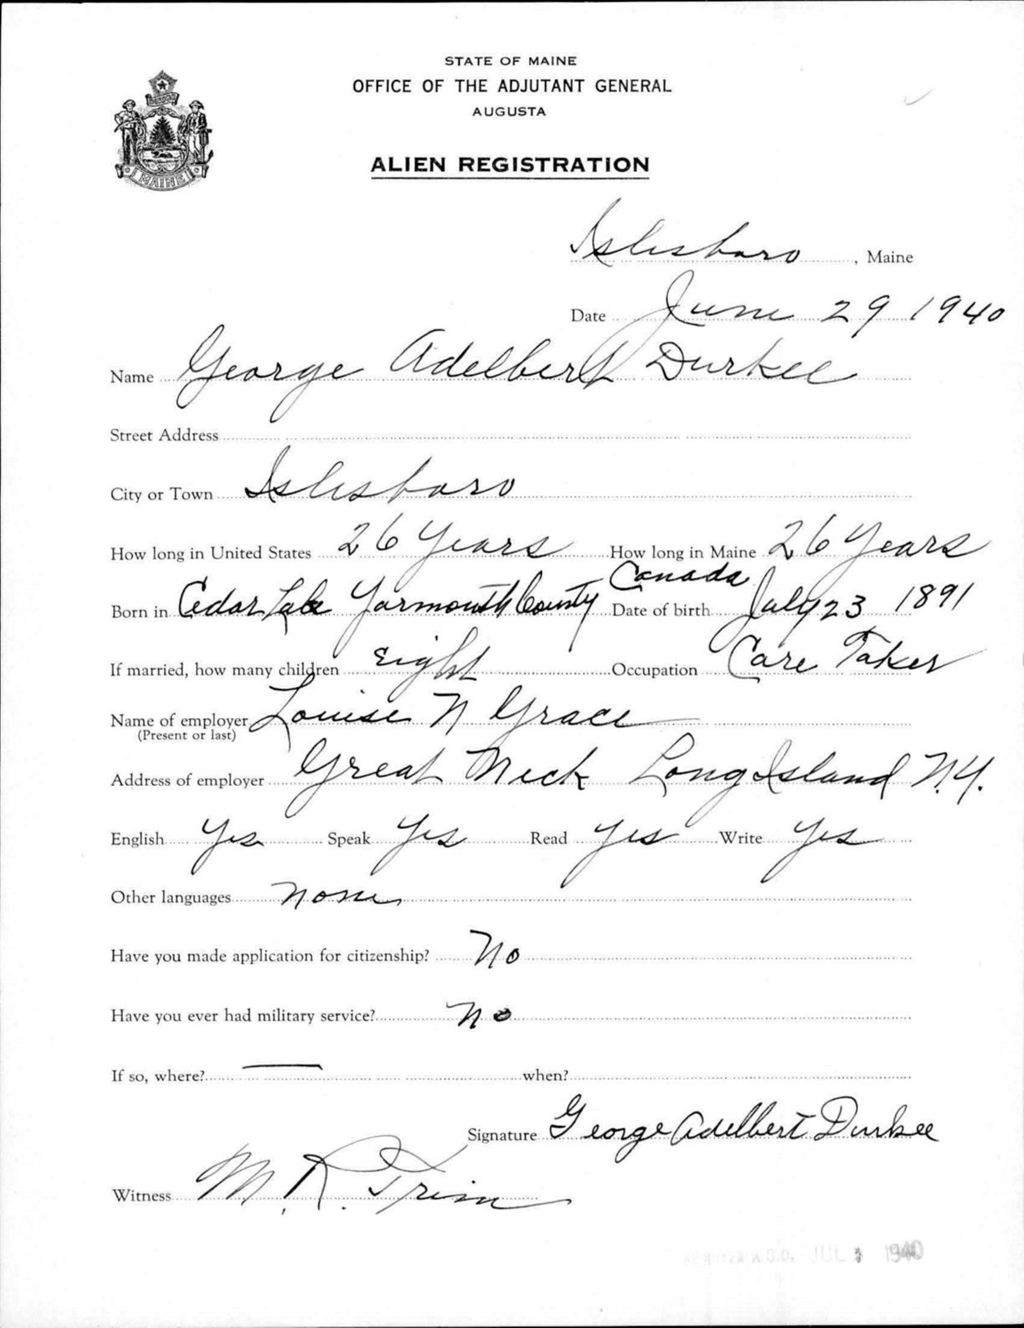 STATE OF MAINE
OFFICE OF THE ADJUTANT GENERAL
AUGUSTA
ALIEN REGISTRATION
MAINE
Islesboro, Maine
Date June 29 1940
Name George Adelbert Durkee
Street Address
City or Town Islesboro
How long in United States 26 Years How long in Maine 26 Years
Born in Cedar Lake Yarmouth County Canada Date of birth July 23 1891
If married, how many children Eight Occupation Care Taker
Name of employer Louise N Grace
(Present or last)
Address of employer Great Neck Long Island N.Y.
English Yes Speak Yes Read Yes Write Yes
Other languages None
Have you made application for citizenship? No
Have you ever had military service? No
If so, where? — when?
Signature George Adelbert Durkee
Witness M. R. Trim
A.G.O. JUL 1940